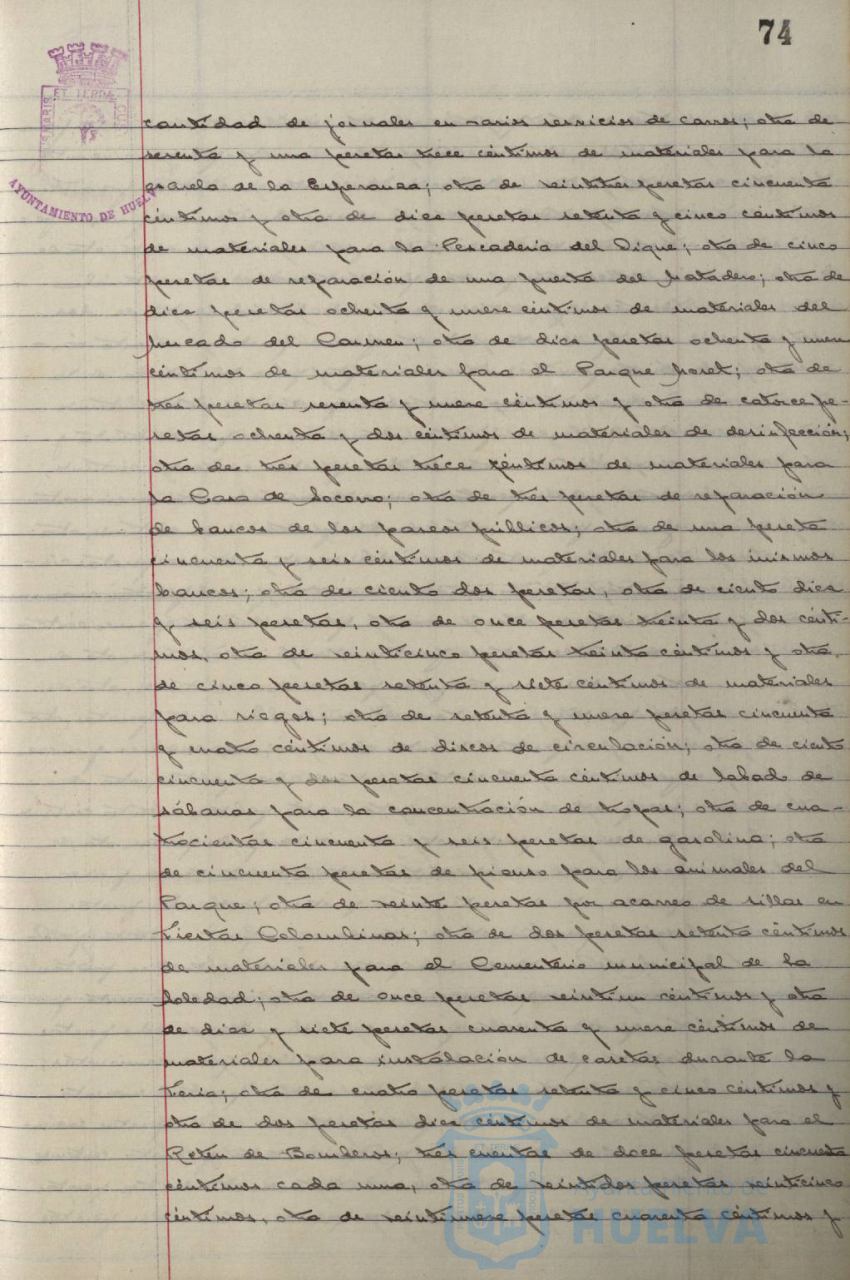 74
MARIS ET TERRÆ CUS
AYUNTAMIENTO DE HUELV
cantidad de jornales en varios servicios de carros; otra de
sesenta y una pesetas trece céntimos de materiales para la
de la Esperanza; otra de veintitres pesetas cincuenta
céntimos y otra de diez pesetas setenta y cinco céntimos
de materiales para la Pescaderia del Dique; otra de cinco
pesetas de reparación de una puerta del Matadero; otra de
diez pesetas ochenta y nueve céntimos de materiales del
Mercado del Carmen; otra de diez pesetas ochenta y nueve
céntimos de materiales para el Parque Moret; otra de
tres pesetas sesenta y nueve céntimos y otra de catorce pe-
setas ochenta y dos céntimos de materiales de desinfección;
otra de tres pesetas trece céntimos de materiales para
la Casa de Socorro; otra de tres pesetas de reparación
de bancos de los paseos públicos; otra de una peseta
cincuenta y seis céntimos de materiales para los mismos
bancos; otra de ciento dos pesetas, otra de ciento diez
y seis pesetas, otra de once pesetas treinta y dos cénti-
mos, otra de veinticinco pesetas treinta céntimos y otra
de cinco pesetas setenta y siete céntimos de materiales
para riegos; otra de setenta y nueve pesetas cincuenta
y cuatro céntimos de discos de circulación; otra de ciento
cincuenta y dos pesetas cincuenta céntimos de labado de
sábanas para la concentración de tropas; otra de cua-
trocientas cincuenta y seis pesetas de gasolina; otra
de cincuenta pesetas de pienso para los animales del
Parque; otra de veinte pesetas por acarreo de sillas en
Fiestas Colombinas; otra de dos pesetas setenta céntimos
de materiales para el Cementerio municipal de la
Soledad; otra de once pesetas veintiun céntimos y otra
de diez y siete pesetas cuarenta y nueve céntimos de
materiales para instalación de casetas durante la
Feria; otra de cuatro pesetas setenta y cinco céntimos y
otra de dos pesetas diez céntimos de materiales para el
Retén de Bomberos; tres cuentas de doce pesetas cincuenta
céntimos cada una, otra de veintidos pesetas veinticinco
céntimos, otra de veintinueve pesetas cuarenta céntimos y
Ayuntamiento de
HUELVA